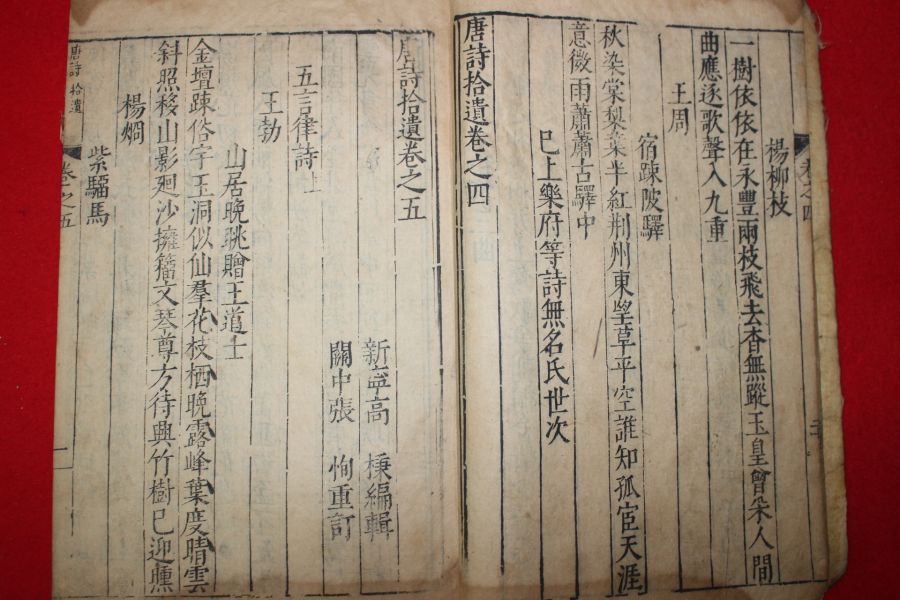 卷之四
楊柳枝
一樹依依在永豐兩枝飛去杳無蹤玉皇曾采人間
曲應逐歌聲入九重
王周
宿疎陂驛
秋染棠棃葉半紅荆州東望草平空誰知孤宦天涯
意微雨蕭蕭古驛中
已上樂府等詩無名氏世次
唐詩拾遺卷之四
唐詩拾遺卷之五
新寧高 棅編輯
關中張 恂重訂
五言律詩上
王勃
山居晚眺贈王道士
金壇踈俗宇玉洞似仙羣花枝栖晚露峰葉度晴雲
斜照移山影廻沙擁籀文琴尊方待興竹樹已迎曛
楊烱
紫騮馬
唐詩拾遺 卷之五 一